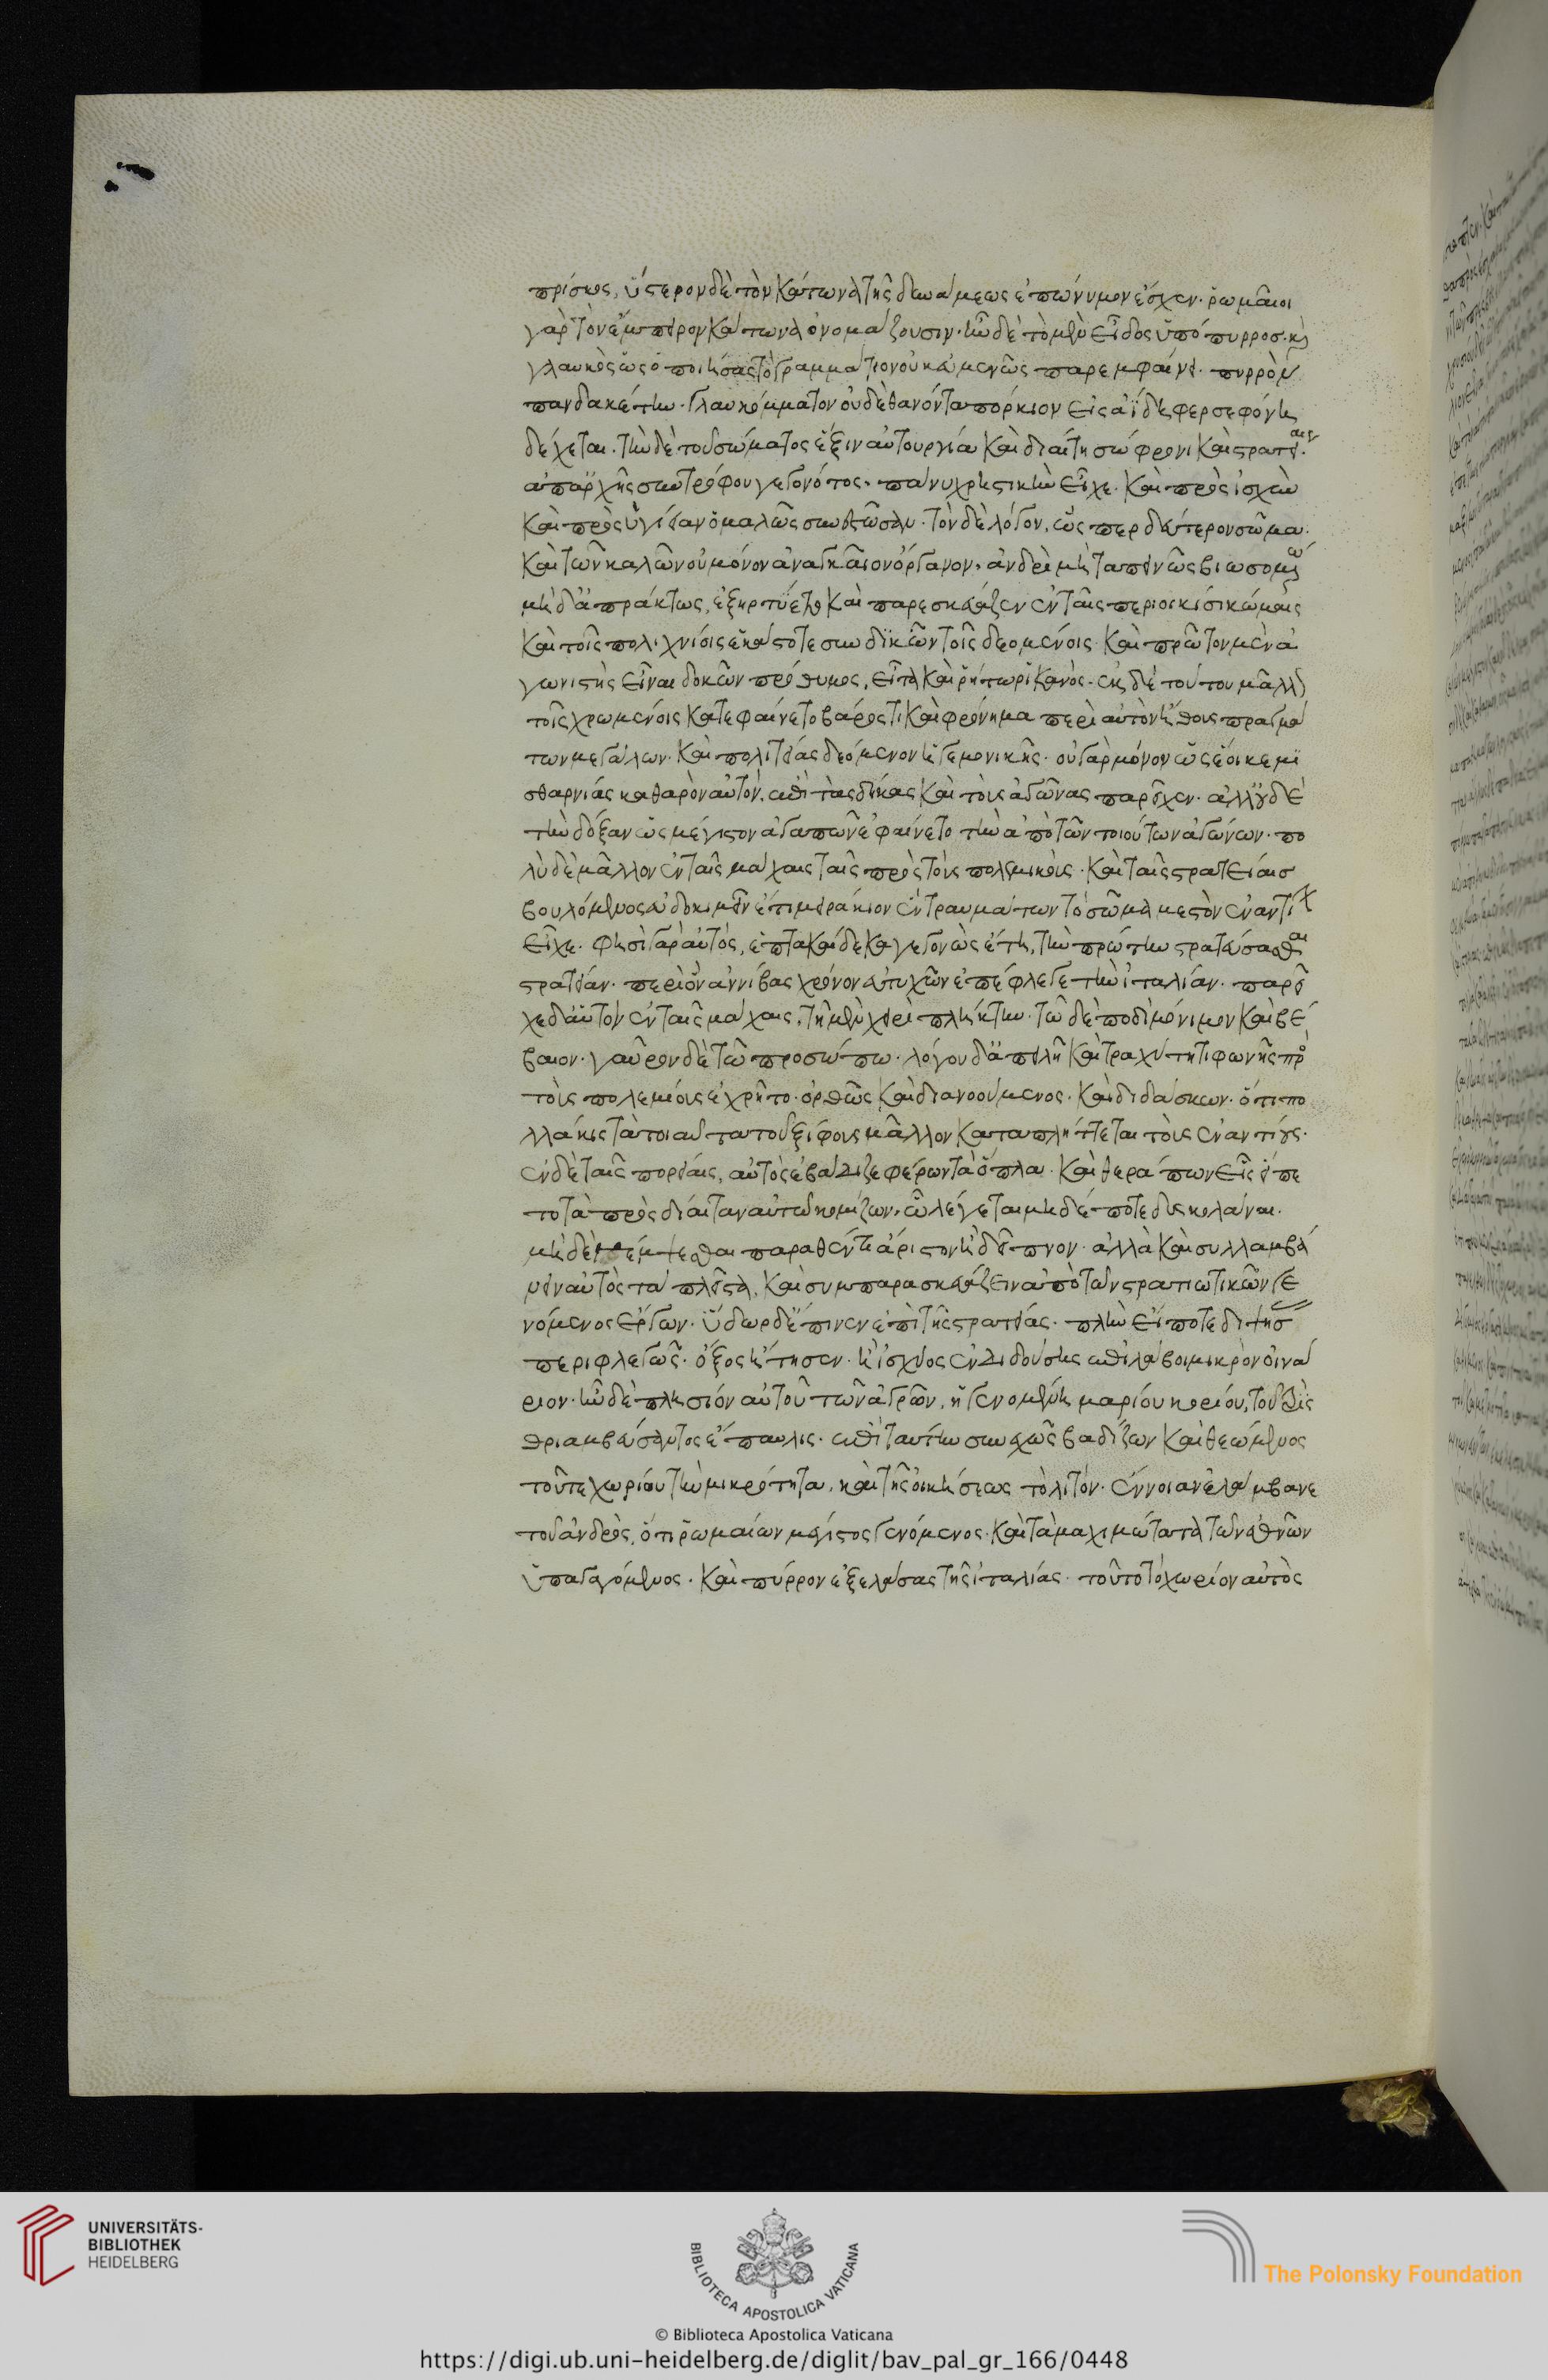 πρίσκος, ὕστερον δὲ τὸν κάτωνα τῆς δυνάμεως ἐπώνυμον ἔσχεν. ῥωμαῖοι
γὰρ τὸν ἔμπειρον κάτωνα ὀνομάζουσιν. ἦν δὲ τὸ μὲν εἶδος ὑπόπυρρος. καὶ
γλαυκὸς ὡς ὁ ποιήσας τὸ γραμμάτιον οὐκ εὐμενῶς παρεμφαίνει. πυρρὸν
πανδακέτην. γλαυκόμματον οὐδὲ θανόντα πόρκιον εἰς ἀΐδην φερσεφόνη
δέχεται. τὴν δὲ τοῦ σώματος ἕξιν αὐτουργία καὶ διαίτη σώφρονι καὶ στρατείαις
ἀπαρχῆς συντρόφου γεγονότος. πάνυ χρηστικὴν εἶχε. καὶ πρὸς ἰσχὺν
καὶ πρὸς ὑγίειαν ὁμαλῶς συνεστῶσαν. τὸν δὲ λόγον, ὥσπερ δεύτερον σῶμα.
καὶ τῶν καλῶν οὐ μόνον ἀναγκαῖον ὄργανον, ἀνδρὶ μὴ ταπεινῶς βιωσομένω
μηδ' ἀπράκτως, ἐξηρτύετο καὶ παρεσκεύαζεν ἐν ταῖς περιοικίσι κώμαις
καὶ τοῖς πολιχνίοις ἑκάστοτε συνδικῶν τοῖς δεομένοις. καὶ πρῶτον μὲν ἀ
γωνιστὴς εἶναι δοκῶν πρόθυμος, εἶτα καὶ ῥήτωρ ἱκανός. ἐκ δὲ τούτου μᾶλλον
τοῖς χρωμένοις κατεφαίνετο βάρος τι καὶ φρόνημα περὶ αὐτὸν ἤθους πραγμά
των μεγάλων. καὶ πολιτείας δεόμενον ἡγεμονικῆς. οὐ γὰρ μόνον ὡς ἔοικε μι
σθαρνίας καθαρὸν αὐτὸν, ἐπὶ τὰς δίκας καὶ τοὺς ἀγῶνας παρεῖχεν. ἀλλ' οὐδὲ
τὴν δόξαν ὡς μέγιστον ἀγαπῶν ἐφαίνετο τὴν ἀπὸ τῶν τοιούτων ἀγώνων. πο
λὺ δὲ μᾶλλον ἐν ταῖς μάχαις ταῖς πρὸς τοὺς πολεμικοὺς. καὶ ταῖς στρατείαις
βουλόμενος εὐδοκιμεῖν ἔτι μειράκιον ὢν τραυμάτων τὸ σῶμα μεστὸν ἐναντίων
εἶχε. φησὶ γὰρ αὐτὸς, ἑπτακαίδεκα γεγονὼς ἔτη, τὴν πρώτην στρατεύσασθαι
στρατείαν. περὶ ὃν ἀννίβας χρόνον εὐτυχῶν ἐπέφλεγε τὴν ἰταλίαν. παρεῖ
χε δ' αὑτὸν ἐν ταῖς μάχαις, τῆ μὲν χειρὶ πλήκτην. τῶ δὲ ποδὶ μόνιμον καὶ βέ
βαιον. γαῦρον δὲ τῶ προσώπω. λόγου δ' ἀπειλῆ καὶ τραχύτητι φωνῆς πρὸς
τοὺς πολεμίους ἐχρῆτο. ὀρθῶς καὶ διανοούμενος. καὶ διδάσκων. ὅτι πο
λλάκις τὰ τοιαῦτα τοῦ ξίφους μᾶλλον καταπλήττεται τοὺς ἐναντίους.
ἐν δὲ ταῖς πορείαις, αὐτὸς ἐβάδιζε φέρων τὰ ὅπλα. καὶ θεράπων εἷς εἵπε
το τὰ πρὸς δίαιταν αὐτῶ κομίζων, ὧ λέγεται μηδέποτε δυσκολάναι.
μηδὲ μέμψεσθαι παραθέντι ἄριστον ἢ δεῖπνον. ἀλλὰ καὶ συλλαμβά
νειν αὐτὸς τὰ πλεῖστα, καὶ συμπαρασκευάζειν ἀπὸ τῶν στρατιωτικῶν γε
νόμενος ἔργων. ὕδωρ δ' ἔπινεν ἐπὶ τῆς στρατείας. πλὴν εἴποτε διψήσ
περιφλεγῶς. ὄξος ἤτησεν. ἢ ἰσχύος ἐνδιδούσης ἐπιλάβοι μικρὸν οἰνά
ριον. ἦν δὲ πλησίον αὐτοῦ τῶν ἀγρῶν, ἡ γενομένη μαρίου κορίου, τοῦ τρὶς
θριαμβεύσαντος ἔπαυλις. ἐπὶ ταύτην συνεχῶς βαδίζων καὶ θεώμενος
τοῦ τε χωρίου τὴν μικρότητα, καὶ τῆς οἰκήσεως τὸ λιτόν. ἔννοιαν ἐλάμβανε
τοῦ ἀνδρὸς, ὅτι ῥωμαίων μέγιστος γενόμενος. καὶ τὰ μαχιμώτατα τῶν ἐθνῶν
ὑπαγαγόμενος. καὶ πύρρον ἐξελάσας τῆς ἰταλίας. τοῦτο τὸ χωρίον αὐτὸς
UNIVERSITÄTS-
BIBLIOTHEK
HEIDELBERG
BIBLIOTECA APOSTOLICA VATICANA
© Biblioteca Apostolica Vaticana
The Polonsky Foundation
https://digi.ub.uni-heidelberg.de/diglit/bav_pal_gr_166/0448